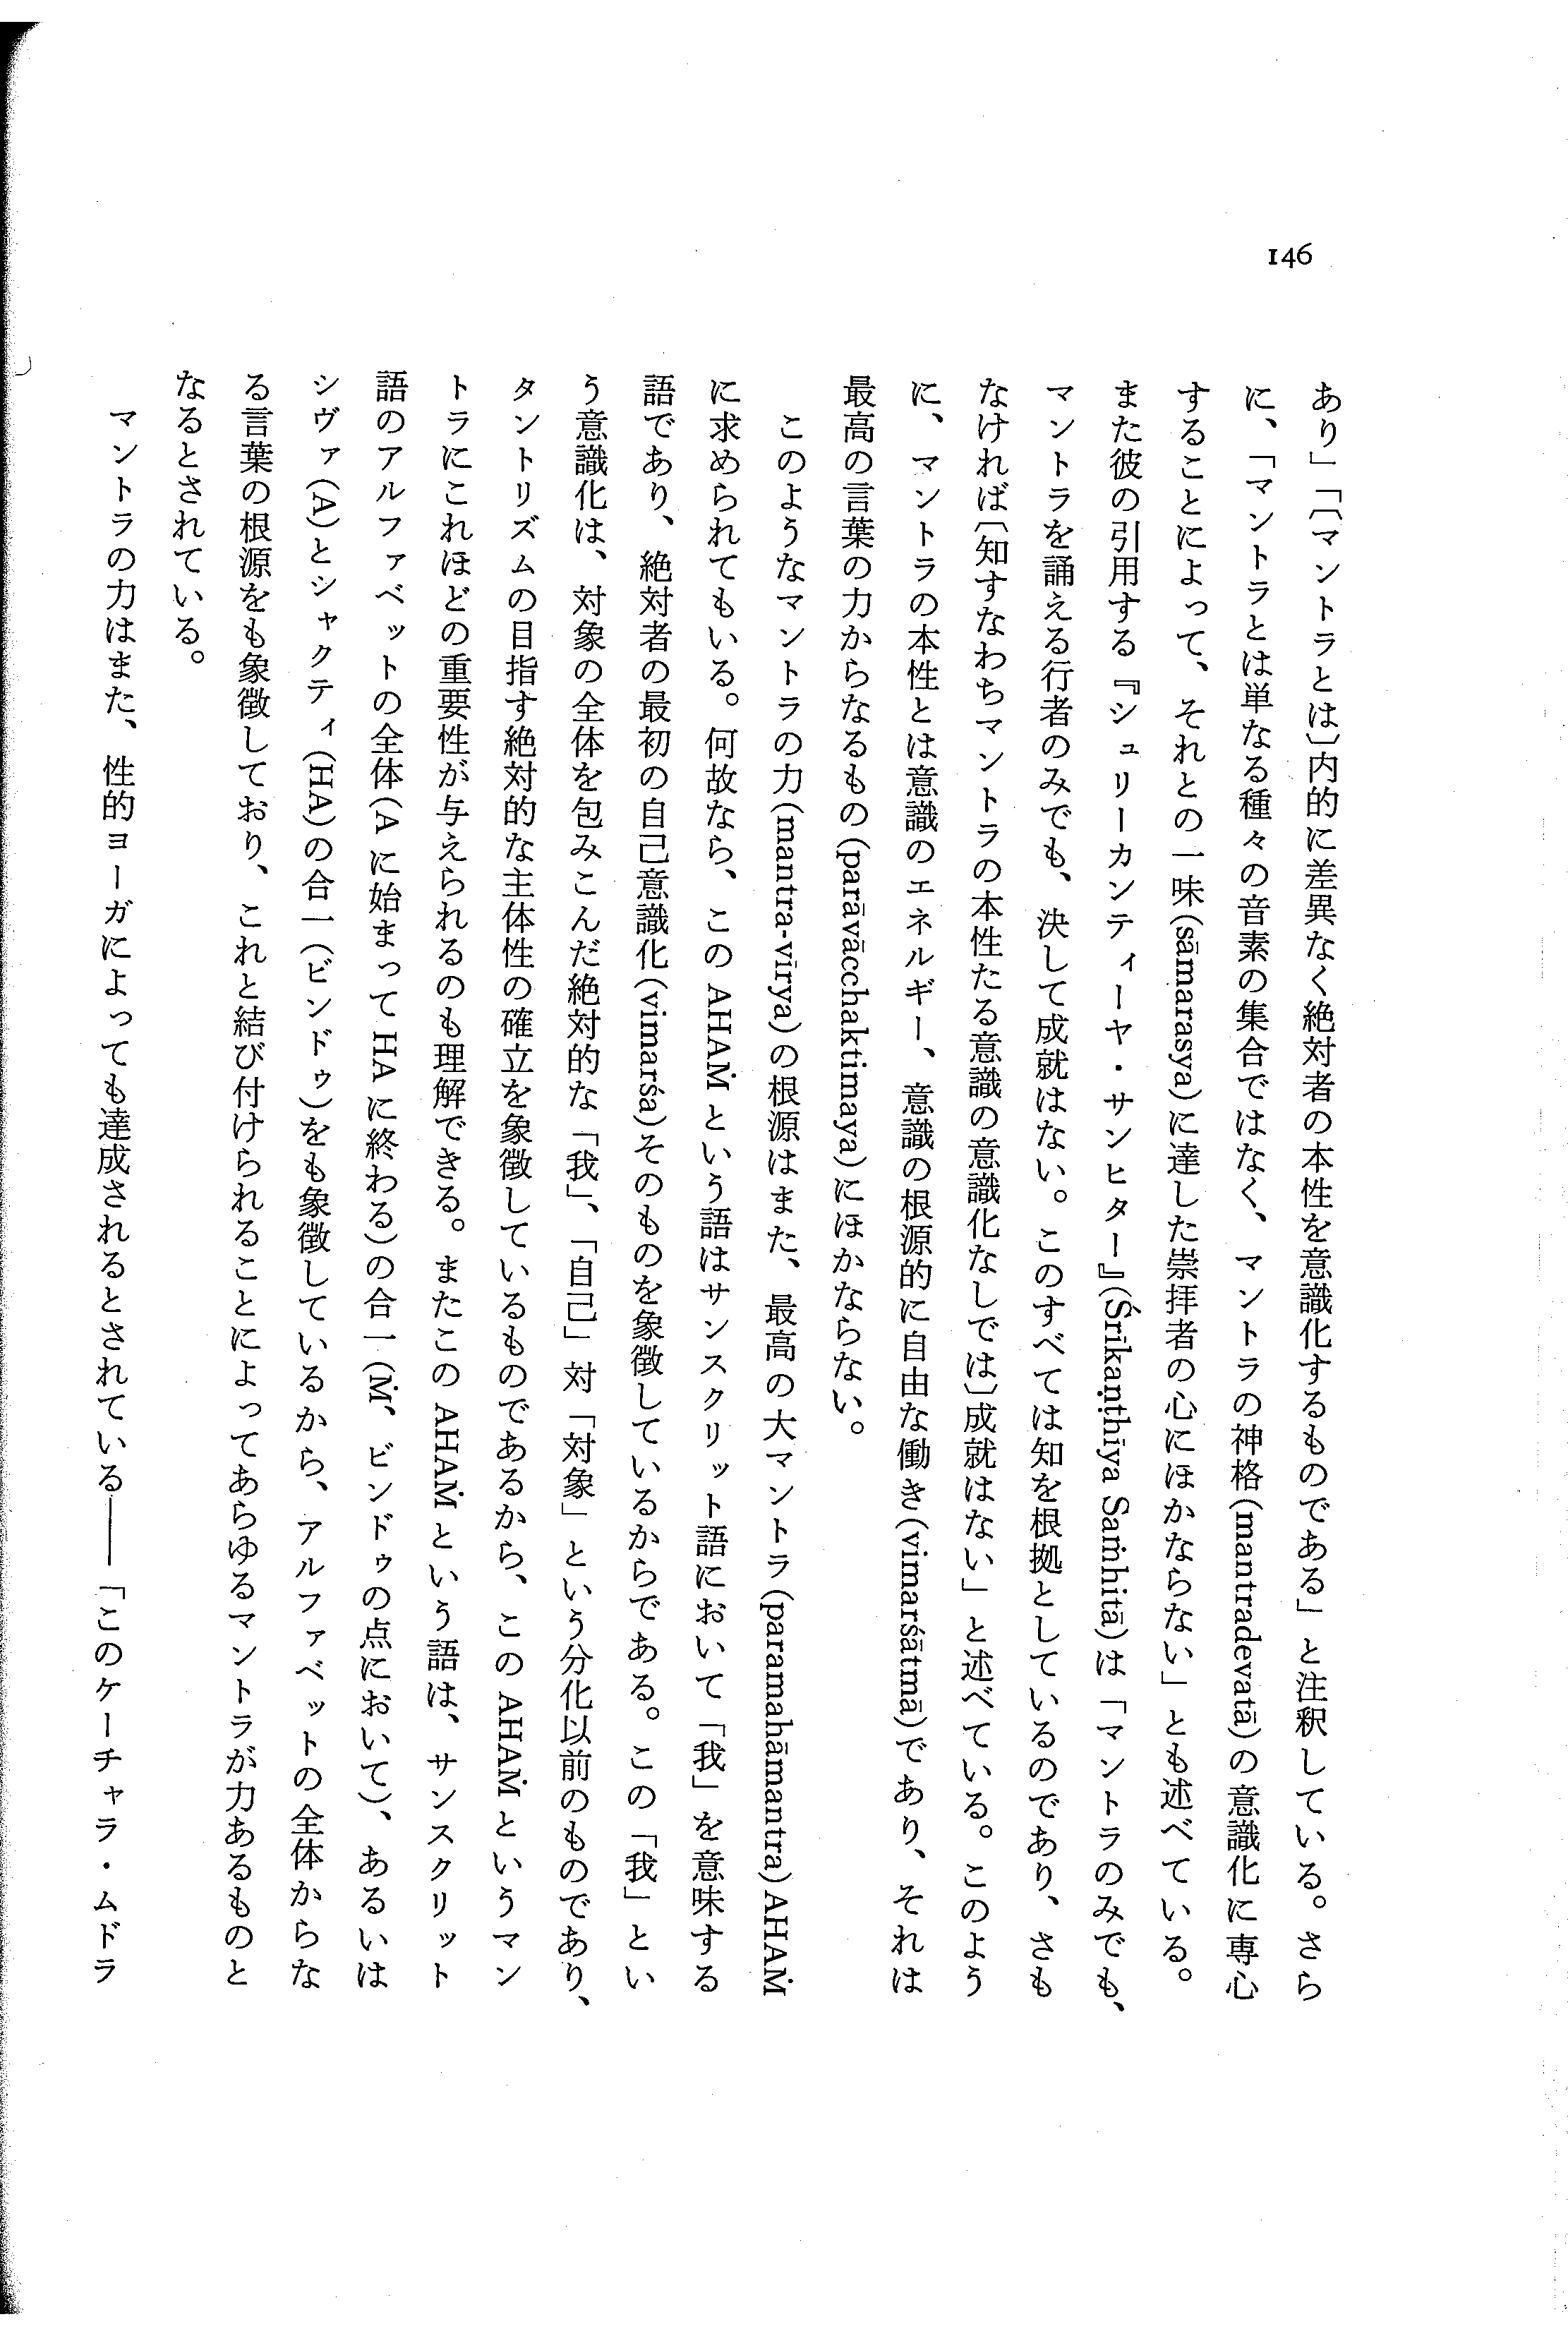 146
あり」「〔マントラとは〕内的に差異なく絶対者の本性を意識化するものである」と注釈している。さら
に、「マントラとは単なる種々の音素の集合ではなく、マントラの神格(mantradevatā)の意識化に専心
することによって、それとの一味(sāmarasya)に達した崇拝者の心にほかならない」とも述べている。
また彼の引用する『シュリーカンティーヤ・サンヒター』(Śrīkaṇṭhīya Saṁhitā)は「マントラのみでも、
マントラを誦える行者のみでも、決して成就はない。このすべては知を根拠としているのであり、さも
なければ〔知すなわちマントラの本性たる意識の意識化なしでは〕成就はない」と述べている。このよう
に、マントラの本性とは意識のエネルギー、意識の根源的に自由な働き(vimarśātmā)であり、それは
最高の言葉の力からなるもの(parāvācchaktimaya)にほかならない。
このようなマントラの力(mantra-vīrya)の根源はまた、最高の大マントラ(paramahāmantra)AHAṀ
に求められてもいる。何故なら、この AHAṀ という語はサンスクリット語において「我」を意味する
語であり、絶対者の最初の自己意識化(vimarśa)そのものを象徴しているからである。この「我」とい
う意識化は、対象の全体を包みこんだ絶対的な「我」、「自己」対「対象」という分化以前のものであり、
タントリズムの目指す絶対的な主体性の確立を象徴しているものであるから、この AHAṀ というマン
トラにこれほどの重要性が与えられるのも理解できる。またこの AHAṀ という語は、サンスクリット
語のアルファベットの全体(A に始まって HA に終わる)の合一(Ṁ、ビンドゥの点において)、あるいは
シヴァ(A)とシャクティ(HA)の合一(ビンドゥ)をも象徴しているから、アルファベットの全体からな
る言葉の根源をも象徴しており、これと結び付けられることによってあらゆるマントラが力あるものと
なるとされている。
マントラの力はまた、性的ヨーガによっても達成されるとされている――「このケーチャラ・ムドラ